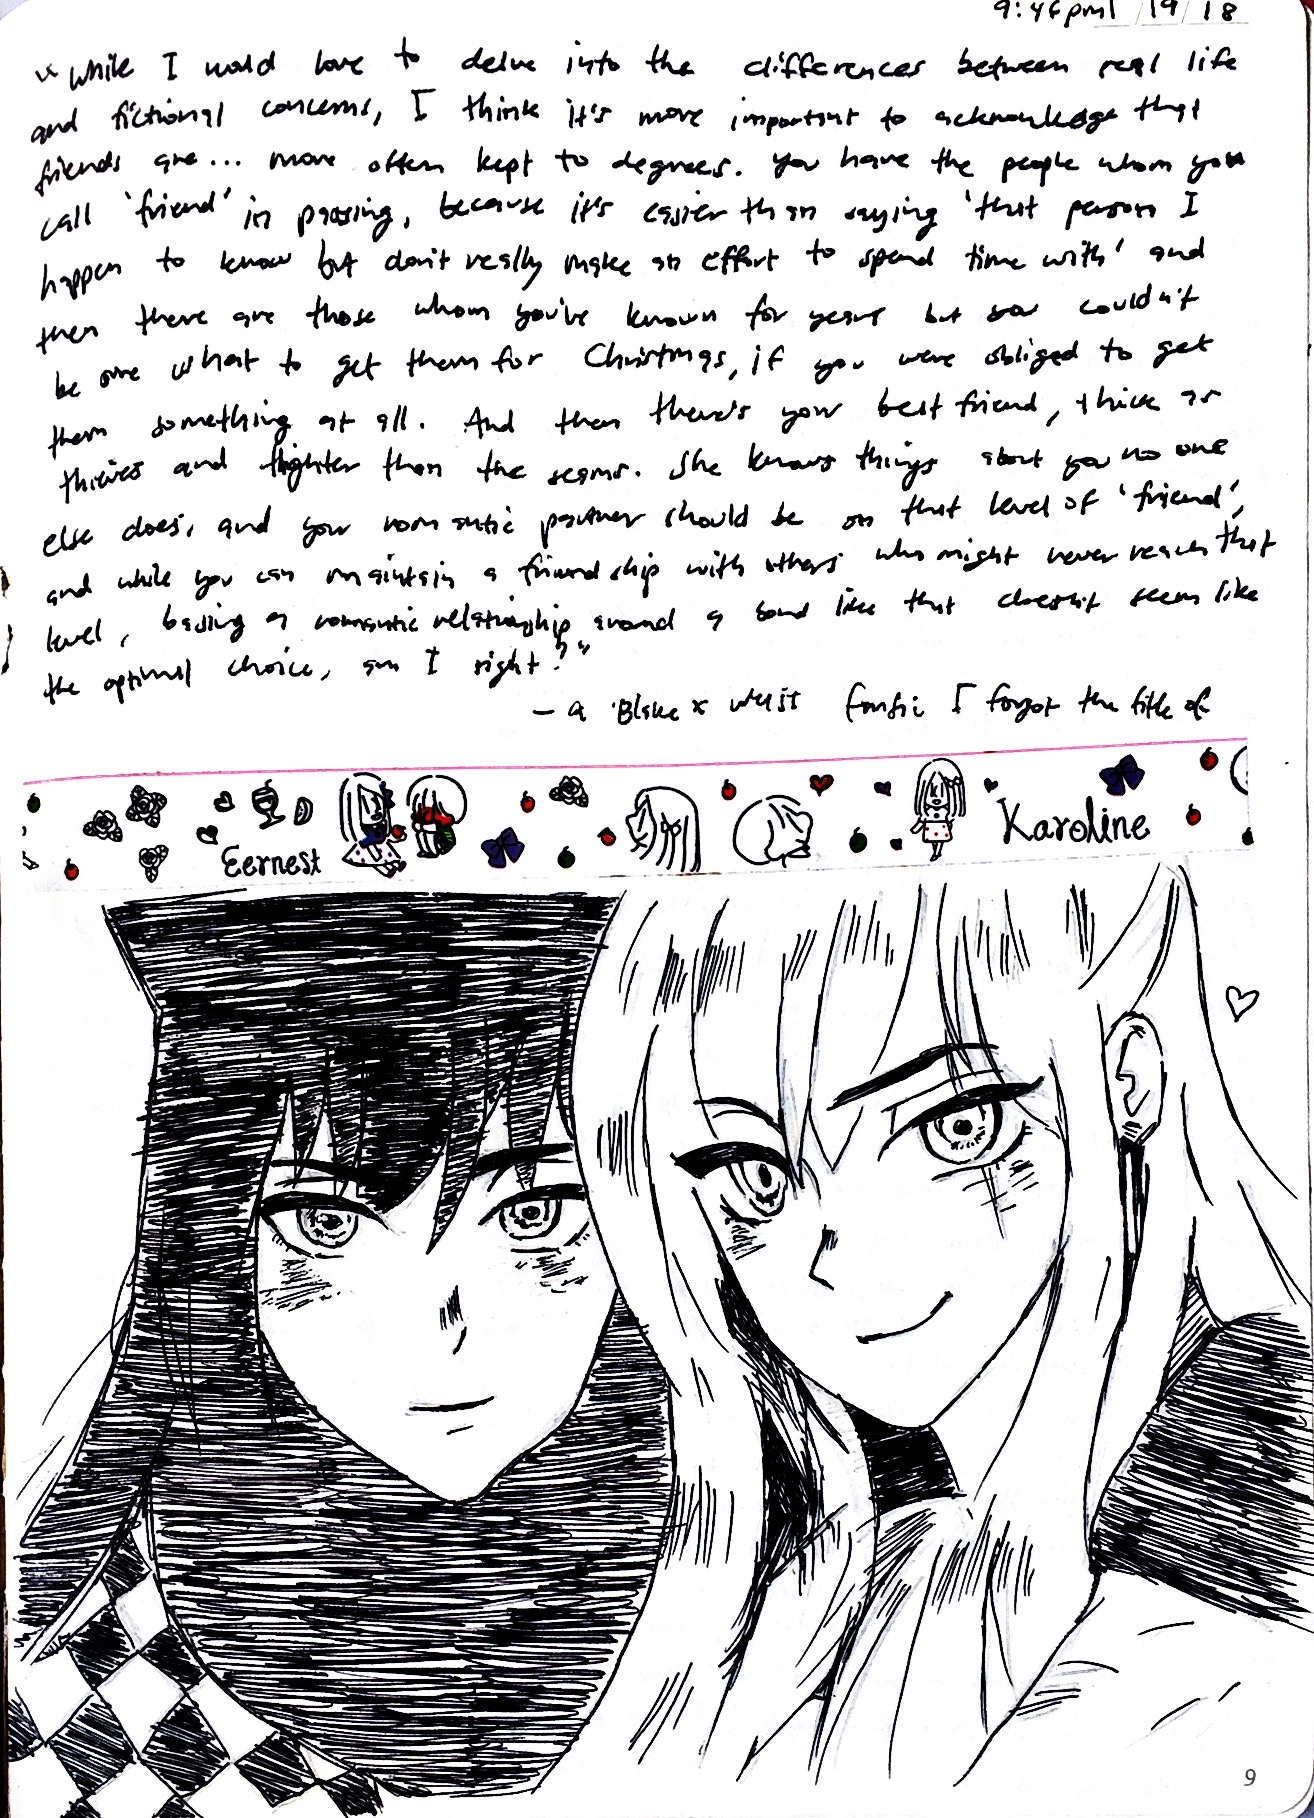 9:46pm 19/18
"While I would love to delve into the differences between real life
and fictional concerns, I think it's more important to acknowledge that
friends are... more often kept to degrees. You have the people whom you
call 'friend' in passing, because it's easier than saying 'that person I
happen to know but don't really make an effort to spend time with' and
then there are those whom you've known for years but you couldn't
be sure what to get them for Christmas, if you were obliged to get
them something at all. And then there's your best friend, thick as
thieves and tighter than the seams. She knows things about you no one
else does, and your romantic partner should be on that level of 'friend',
and while you can maintain a friendship with others who might never reach that
level, basing a romantic relationship around a bond like that doesn't seem like
the optimal choice, am I right?"
- a Blake x Weiss fanfic I forgot the title of
Eernest
Karoline
9